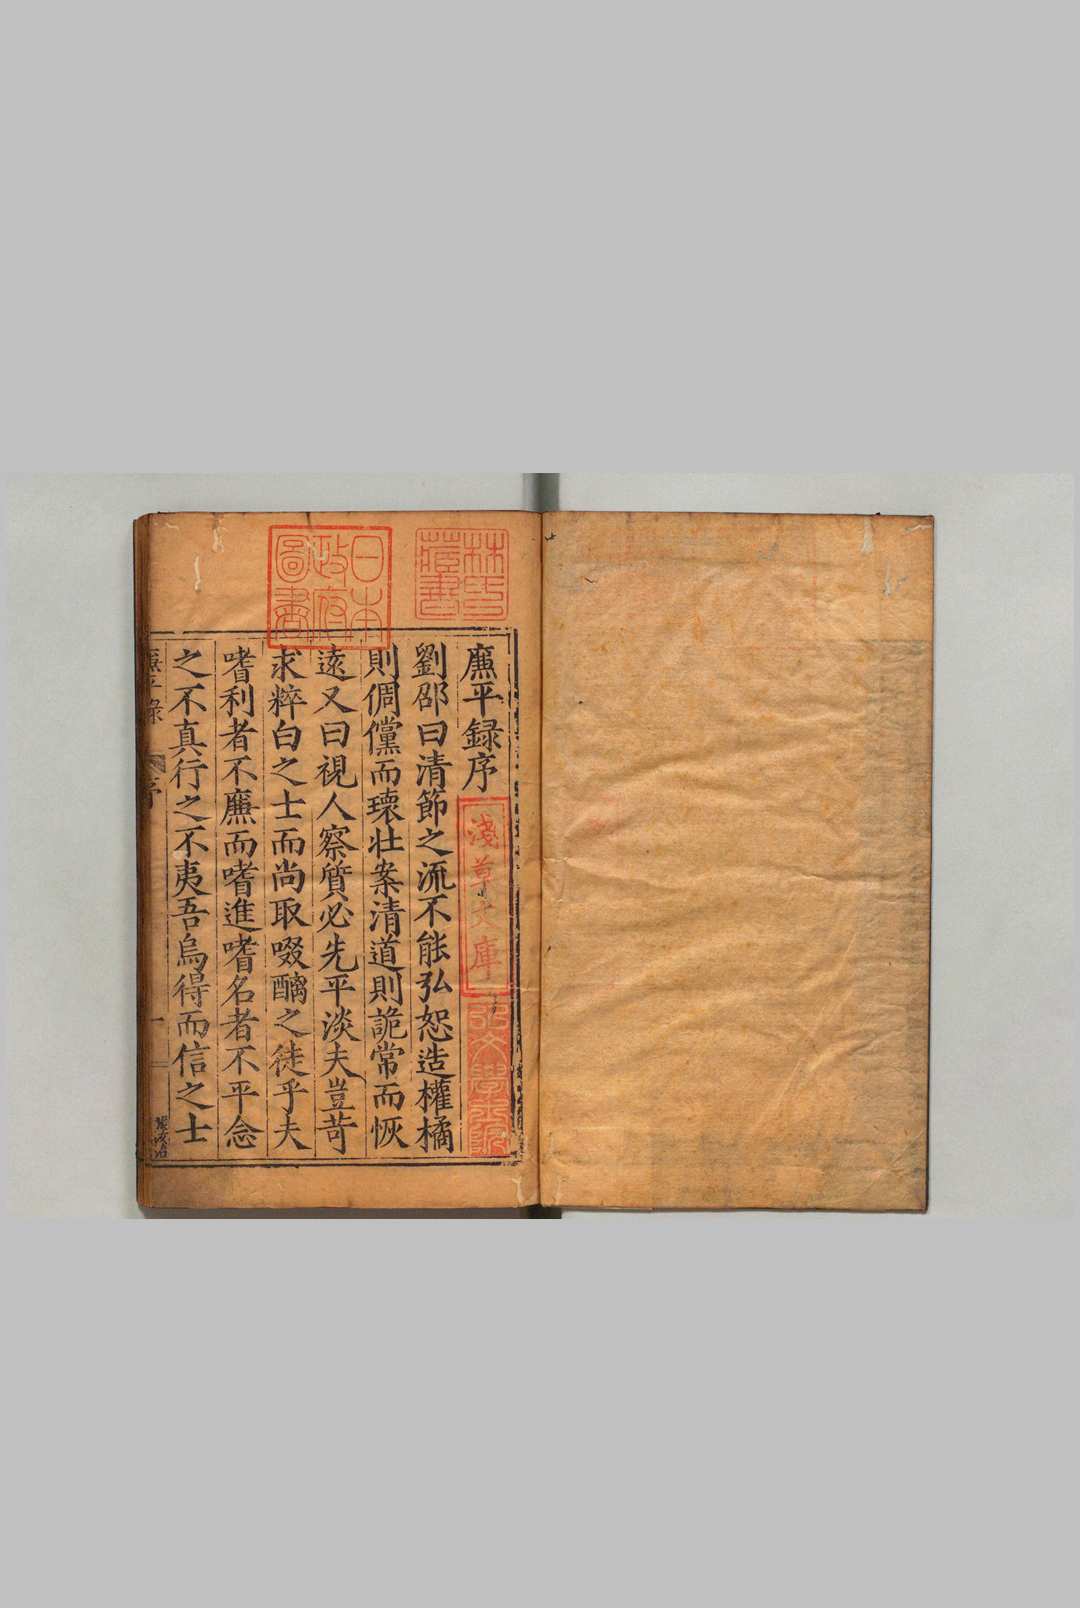 廉平録序
劉邵曰清節之流不能弘恕造權橘
則倜儻而瓌壯案清道則詭常而恢
遠又曰視人察質必先平淡夫豈苛
求粹白之士而尚取啜醨之徒乎夫
嗜利者不廉而嗜進嗜名者不平念
之不真行之不夷吾烏得而信之士
廉平錄
序
一
林氏藏書
日本政府圖書
淺草文庫
弘文學士院